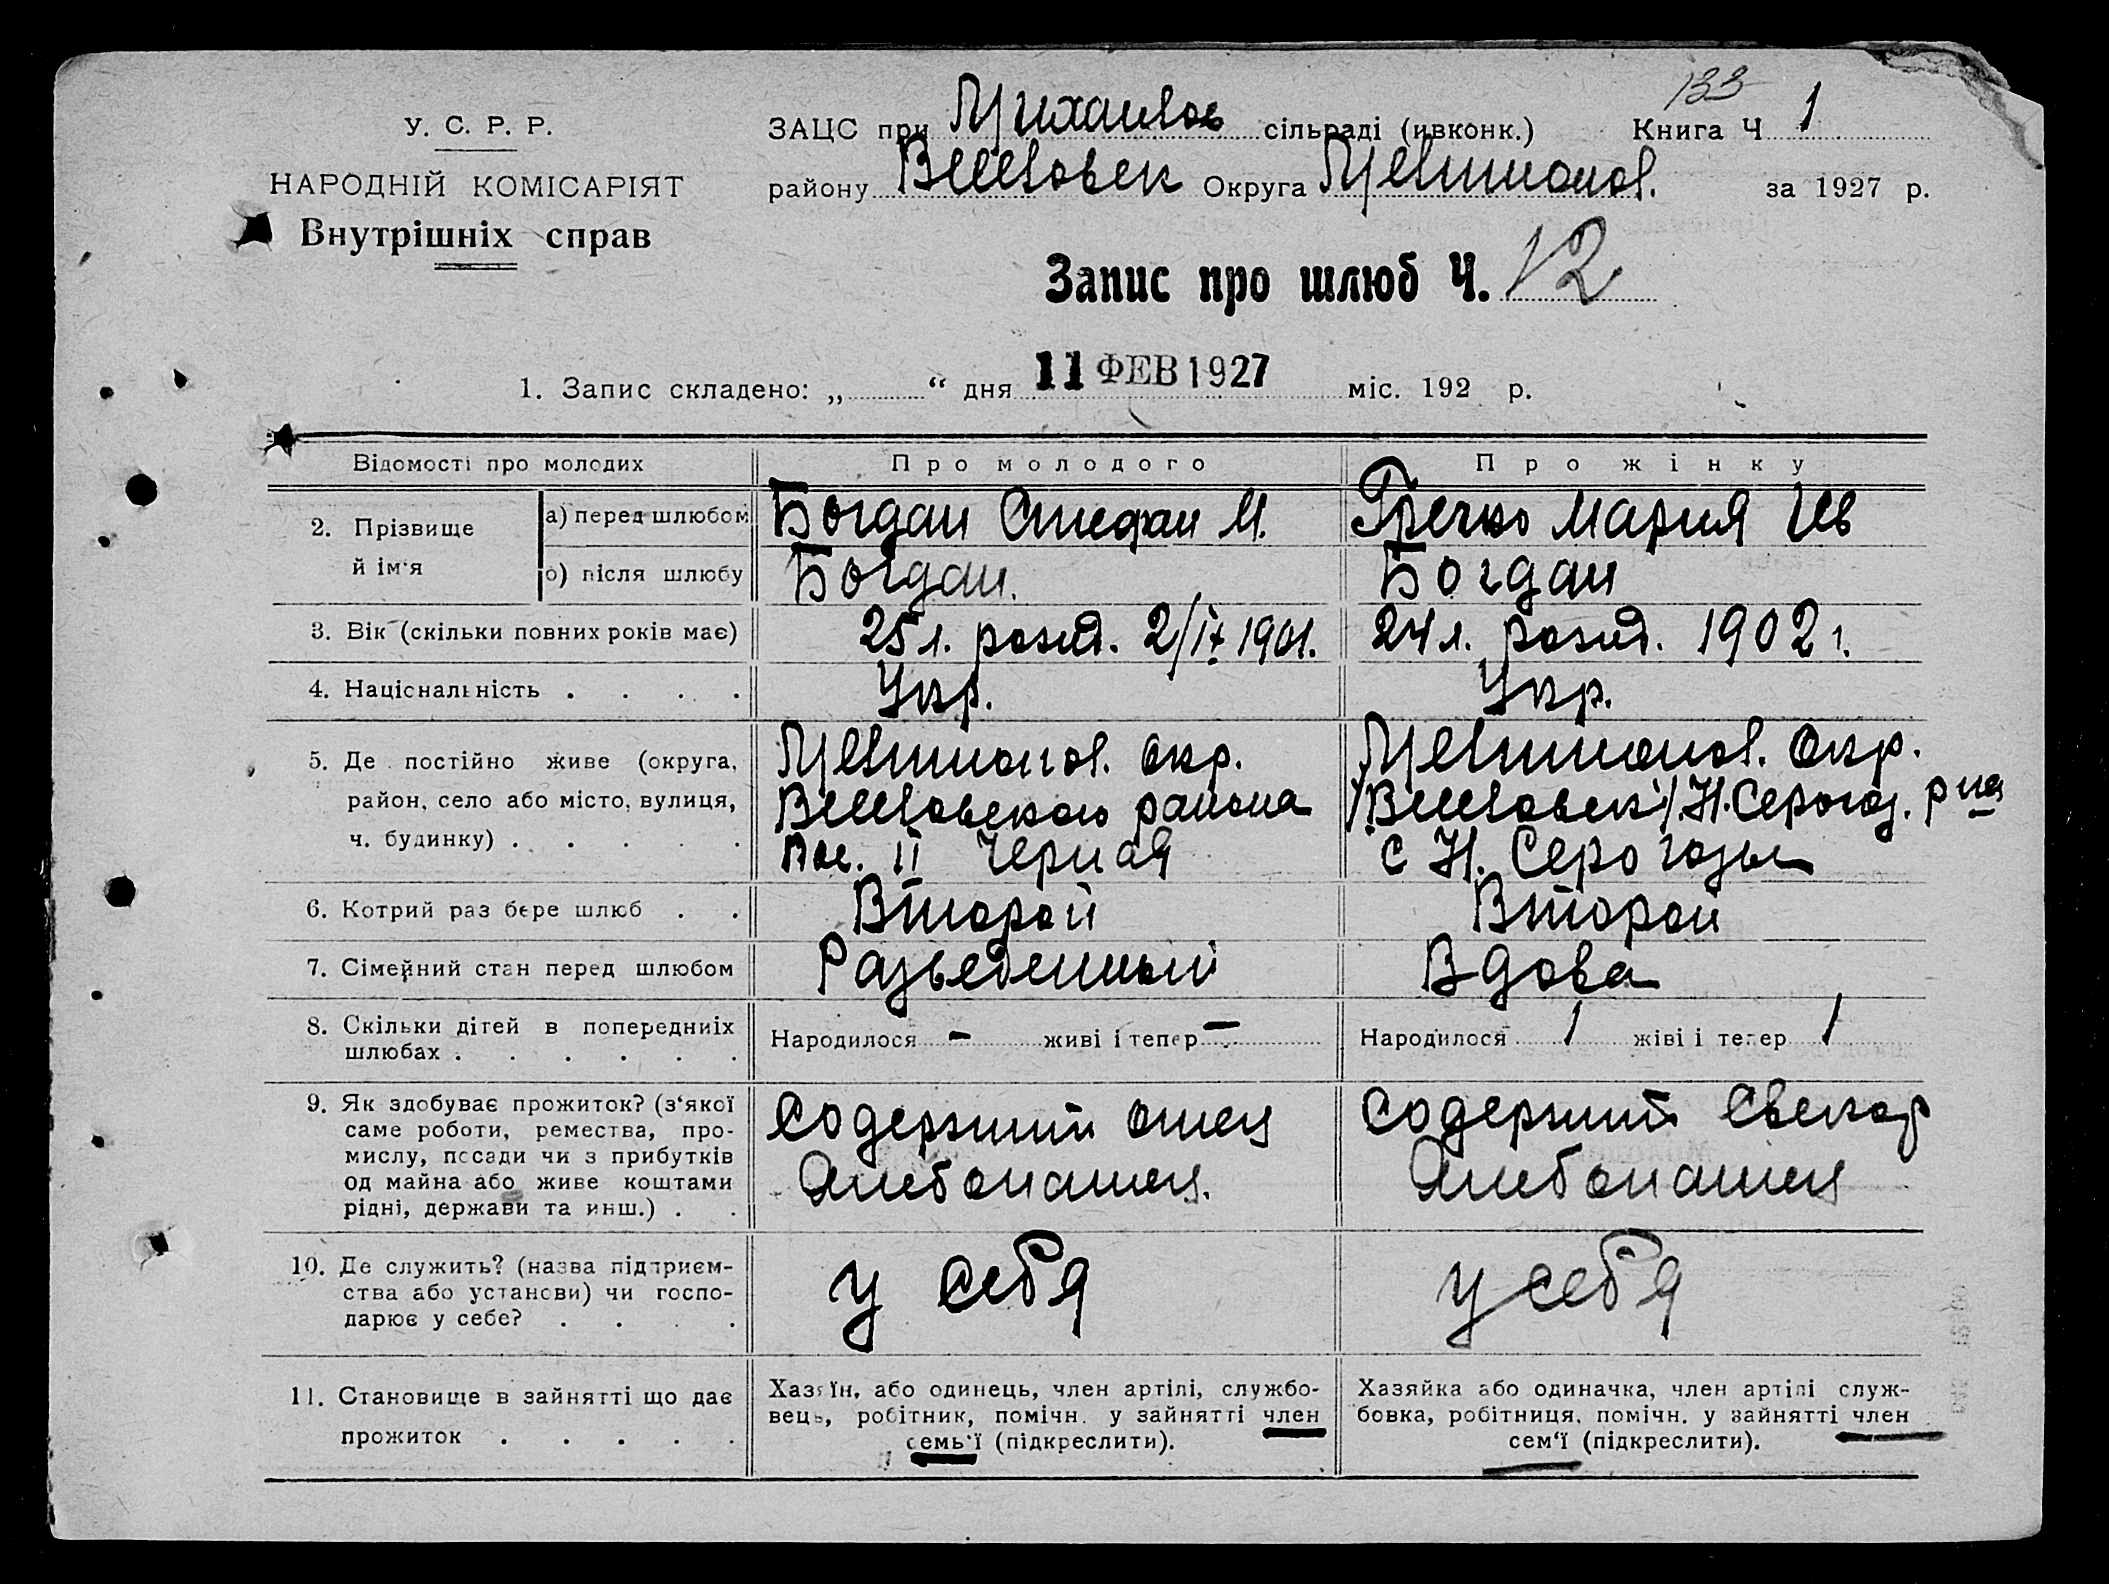 133
У. С. Р. Р.
НАРОДНІЙ КОМІСАРІЯТ
Внутрішніх справ
ЗАЦС при Михайлов сільраді (ивконк.) Книга Ч 1
району Веселовск Округа Мелитопол. за 1927 р.
Запис про шлюб Ч. 12
1. Запис складено: „ “ дня 11 ФЕВ 1927 міс. 192 р.
Відомості про молодих Про молодого Про жінку
2. Прізвище й ім'я
а) перед шлюбом Богдан Стефан М. Гречко Мария Ив
б) після шлюбу Богдан. Богдан
3. Вік (скільки повних років має) 25 л. рожд. 2/IX 1901. 24 л. рожд. 1902 г.
4. Національність . . . . Укр. Укр.
5. Де постійно живе (округа, район, село або місто, вулиця, ч. будинку) . . . . .
Мелитопол. окр. Веселовского района пос. II Черная
Мелитопол. Окр. /Веселовск/ Н. Серогоз. р на с Н. Серогозы
6. Котрий раз бере шлюб . . Второй Второй
7. Сімейний стан перед шлюбом Разведенный Вдова
8. Скільки дітей в попередниіх шлюбах . . . . . . Народилося - живі і тепер - Народилося 1 жіві і тепер 1
9. Як здобуває прожиток? (з‘якої саме роботи, ремества, промислу, посади чи з прибутків од майна або живе коштами рідні, держави та инш.) . .
Содержит отец Хлебопашец.
Содержит Свекор Хлебопашец
10. Де служить? (назва підприємства або установи) чи господарює у себе? . . . . у себя у себя
11. Становище в зайнятті що дає прожиток . . . . .
Хазяїн, або одинець, член артілі, службовець, робітник, помічн. у зайнятті член семь‘ї (підкреслити).
Хазяйка або одиначка, член артілі службовка, робітниця, помічн. у зайнятті член сем‘ї (підкреслити).